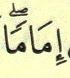 إِمَامًاۖ